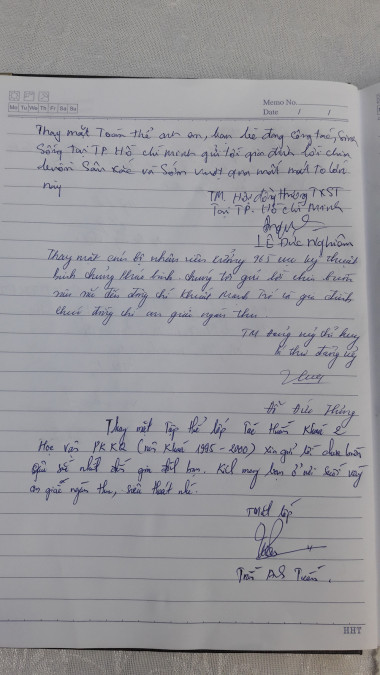 Mo Tu We Th Fr Sa Su
Memo No.
Date / /
Thay mặt Toàn thể anh em, bạn bè đang công tác, sinh
Sống tại TP Hồ chí minh gửi tới gia đình lời chia
buồn Sâu Sắc và Sớm vượt qua mất mát to lớn
này
TM. Hội đồng hương
Tại TP. Hồ Chí Minh
Lê Đức Nghiêm
Thay mặt cán bộ nhân viên xưởng 165 cục kỹ thuật
binh chủng Hóa học chúng tôi gửi lời chia buồn
sâu sắc đến đồng chí Khuất Mạnh và gia đình
chúc đồng chí an giấc ngàn thu
TM Đảng ủy chỉ huy
Bí thư đảng ủy
Đỗ Đức Thắng
Thay mặt Tập thể lớp Tác Huấn Khoá 2
Học viện PKKQ (niên Khoá 1995 - 2000) xin gửi lời chia buồn
sâu sắc nhất đến gia đình bạn. Kính mong bạn ở nơi suối vàng
an giấc ngàn thu, siêu thoát nhé.
TM lớp
Trần Anh Tuấn.
HHT